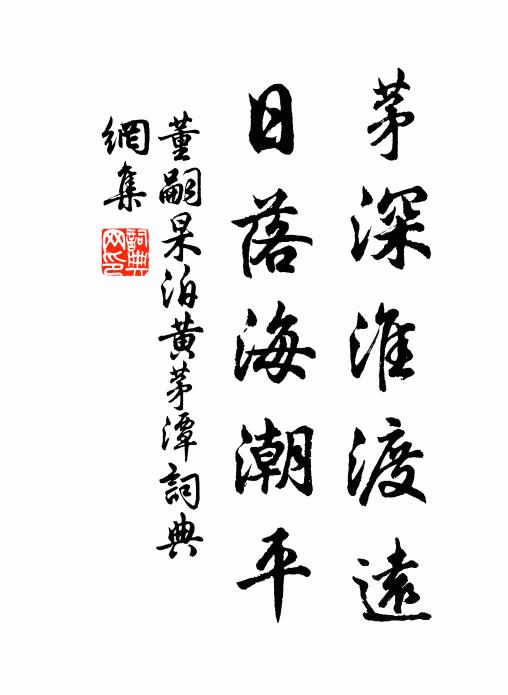 茅深淮渡遠
日落海潮平
董嗣杲泊黄茅潭詞典
網集
詞典
网印